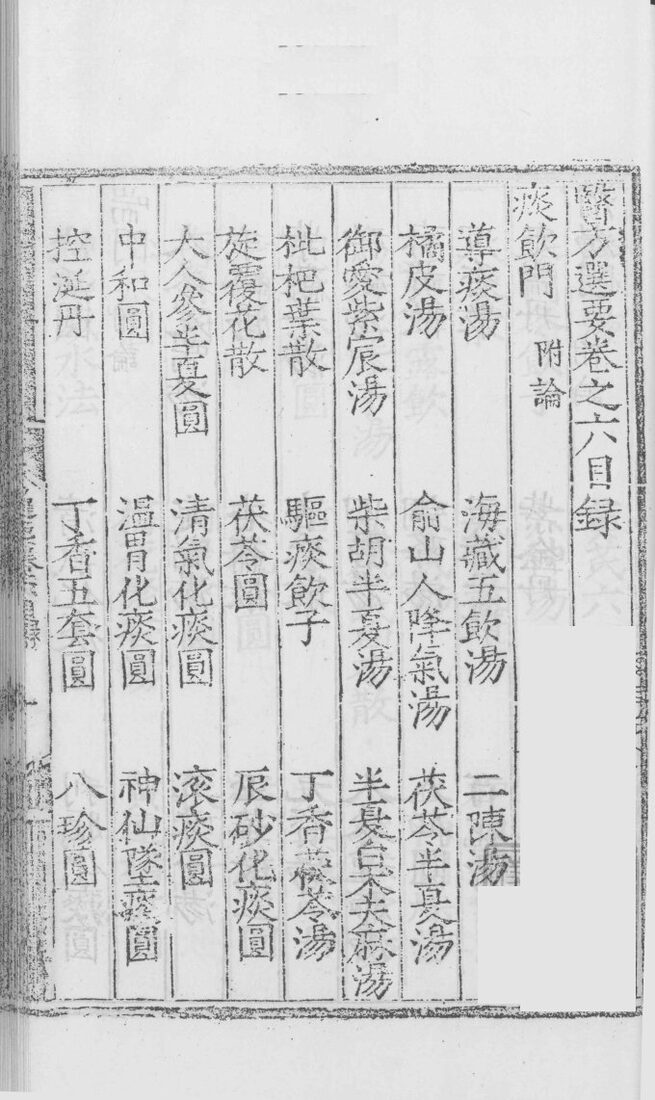 醫方選要卷之六目録
痰飲門 附論
導痰湯 海藏五飲湯 二陳湯
橘皮湯 俞山人降氣湯 茯苓半夏湯
御愛紫宸湯 柴胡半夏湯 半夏白术天麻湯
枇杷葉散 驅痰飲子 丁香茯苓湯
旋覆花散 茯苓圓 辰砂化痰圓
大人參半夏圓 清氣化痰圓 滚痰圓
中和圓 温胃化痰圓 神仙墜痰圓
控涎丹 丁香五套圓 八珍圓